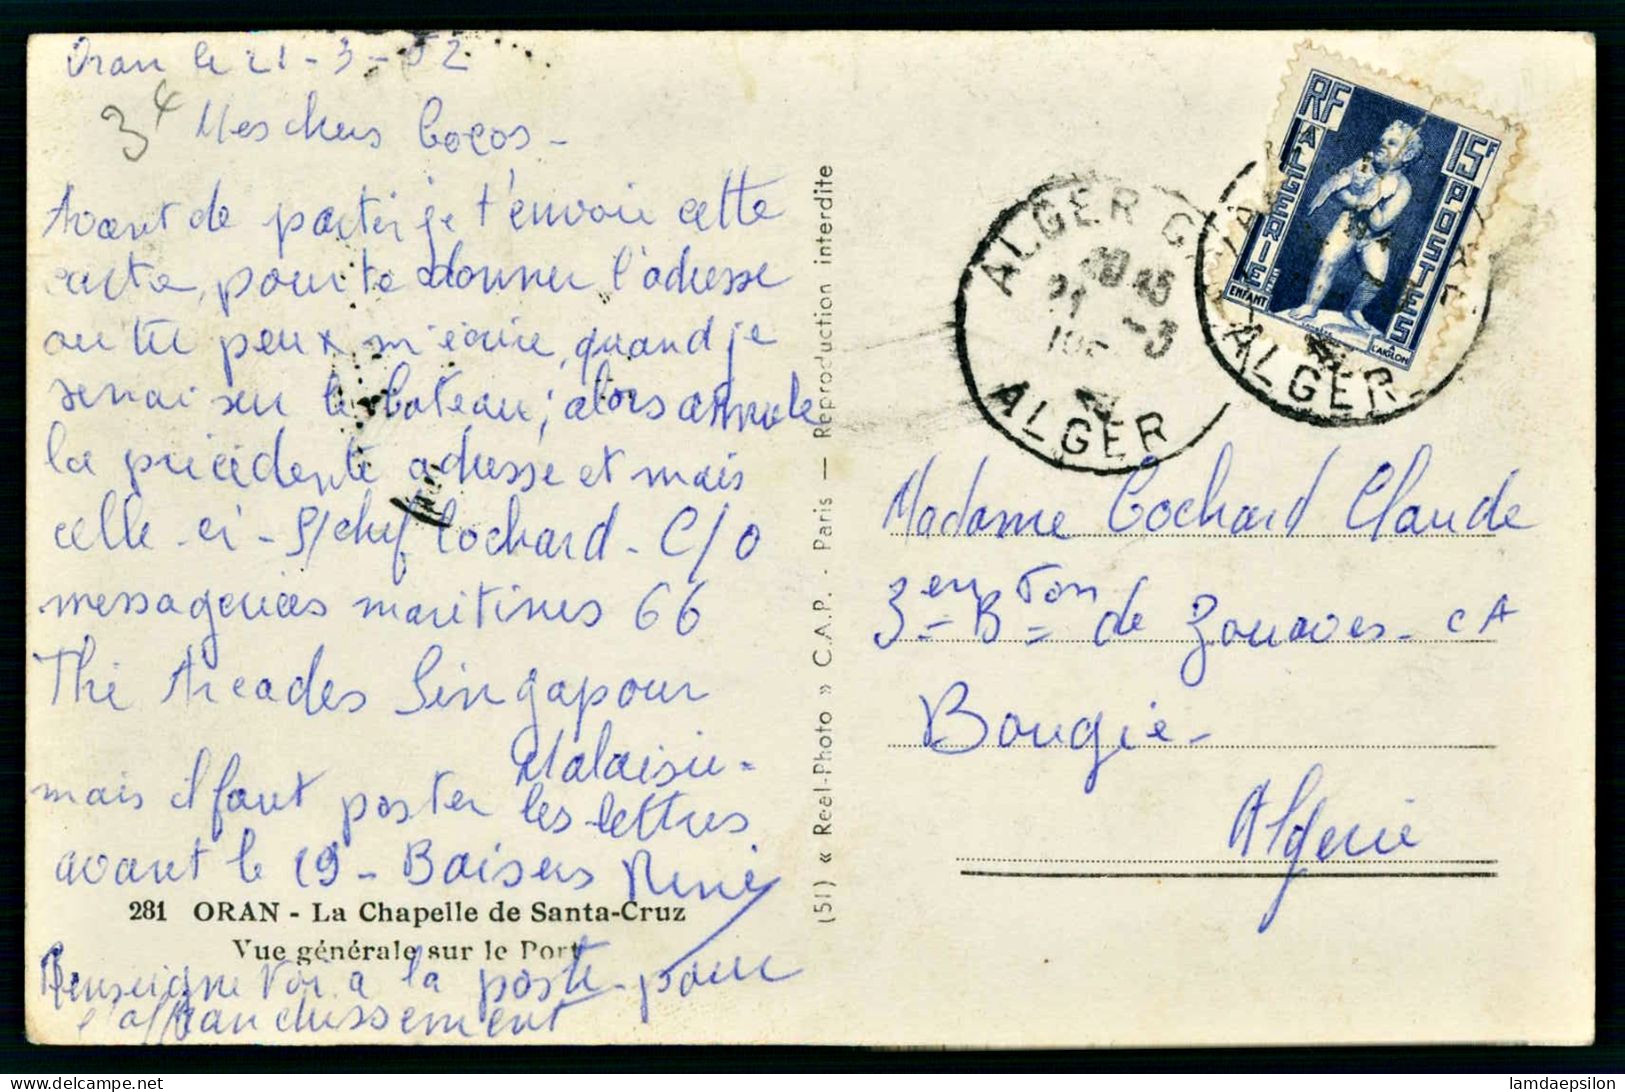 Oran le 21-3-52
34
Mes chers cocos -
Avant de partir je t'envoie cette
carte, pour te donner l'adresse
ou tu peux m'écrire, quand je
serrai sur le bateau; alors annule
la précédente adresse et mais
celle-ci - S/chef Cochard - C/O
messageries maritimes 66
The Arcades Singapour
Malaisie -
mais il faut poster les lettres
avant le 19 - Baisers René
281 ORAN - La Chapelle de Santa-Cruz
Vue générale sur le Port
Renseigne toi a la poste pour
l'affranchissement
(51) « Real-Photo » C.A.P. - Paris — Reproduction interdite
ALGER
21 -3
ALGER
ALGER
RF
15F
ALGERIE
POSTES
ENFANT
A L'AIGLON
Madame Cochard Claude
3em Bton de Zouaves - CA
Bougie -
Algerie
lamdaepsilon
delcampe.net